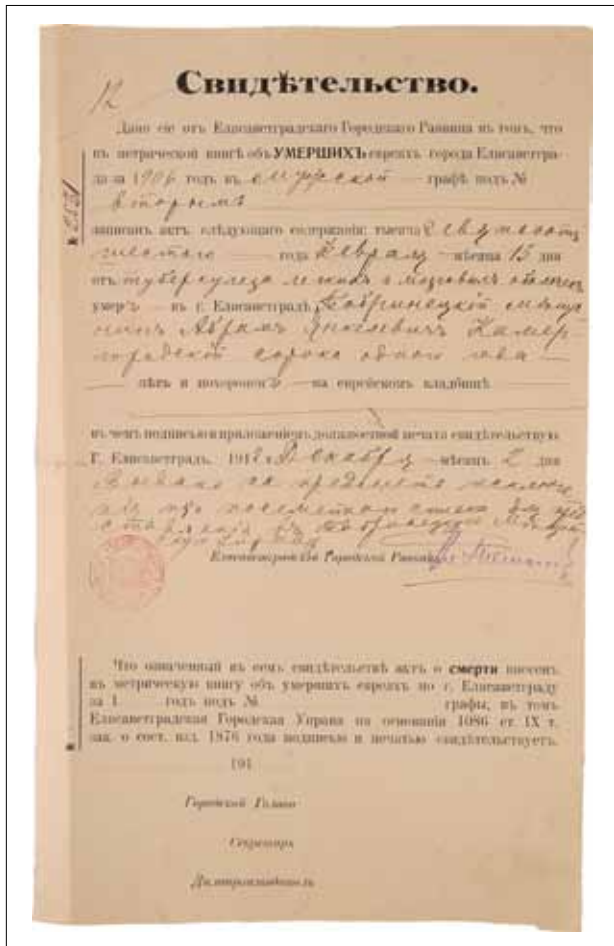 12
Свидѣтельство.
Дано сіе отъ Елисаветградскаго Городскаго Раввина въ томъ, что
въ метрической книгѣ объ УМЕРШИХЪ евреяхъ города Елисаветгра-
да за 1906 годъ въ мужской графѣ подъ №
вторымъ
записанъ актъ слѣдующаго содержанія: тысяча девятьсотъ
шестого года Февраля мѣсяца 15 дня
отъ туберкулеза легкихъ и мозговыхъ оболочекъ
умеръ въ г. Елисаветградѣ Бобринецкій мѣща-
нинъ Абрамъ Янкелевичъ Камер-
городскій сорока одного года
лѣтъ и похороненъ на еврейскомъ кладбищѣ
въ чемъ подписью и приложеніемъ должностной печати свидѣтельствую
Г. Елисаветградъ, 1912 г. Декабря мѣсяца 2 дня
Выдано на предметъ исключе-
нія изъ посемейнаго списка для
Бобринецкую
Елисаветградскій Городской Раввинъ
Что означенный въ семъ свидѣтельствѣ актъ о смерти внесенъ
въ метрическую книгу объ умершихъ евреяхъ по г. Елисаветграду
за 1 годъ подъ № графы, въ томъ
Елисаветградская Городская Управа на основаніи 1086 ст. IX т.
зак. о сост. изд. 1876 года подписью и печатью свидѣтельствуетъ.
191
Городской Голова
Секретарь
Дѣлопроизводитель